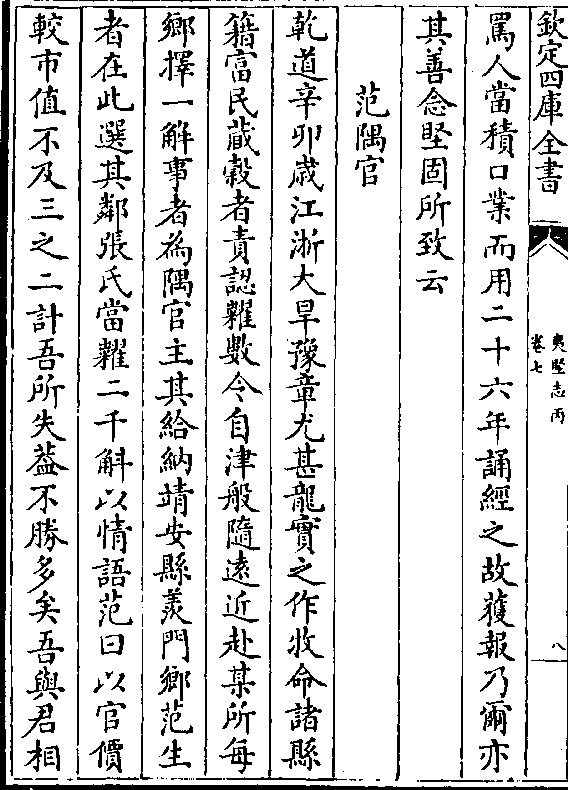 欽定四庫全書
夷堅志丙
卷七
八
罵人當積口業而用二十六年誦經之故獲報乃爾亦
其善念堅固所致云
范隅官
乾道辛卯歲江浙大旱豫章尤甚龍實之作牧命諸縣
籍富民藏穀者責認糶數令自津般隨遠近赴某所每
鄉擇一解事者為隅官主其給納靖安縣羨門鄉范生
者在此選其鄰張氏當糶二千斛以情語范曰以官價
較市值不及三之二計吾所失葢不勝多矣吾與君相